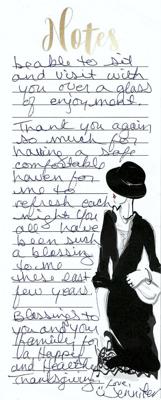 Notes
be able to sit
and visit with
you over a glass
of enjoyment.
Thank you again
so much for
having a safe
comfortable
haven for
me to
refresh each
night you
all have
been such
a blessing
to me
these last
few years.
Blessings to
you and your
family for
a Happy
and Healthy
Thanksgiving
"Love,
Jennifer